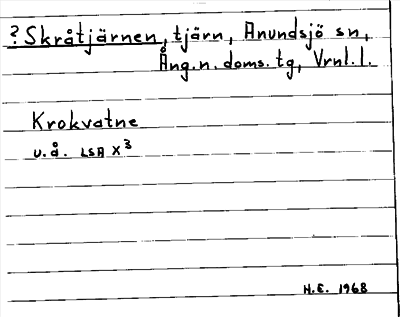 ?Skråtjärnen, tjärn, Anundsjö sn,
Ång.n.doms.tg, Vrnl.l.
Krokvatne
u.å. LSA X³
H.E. 1968